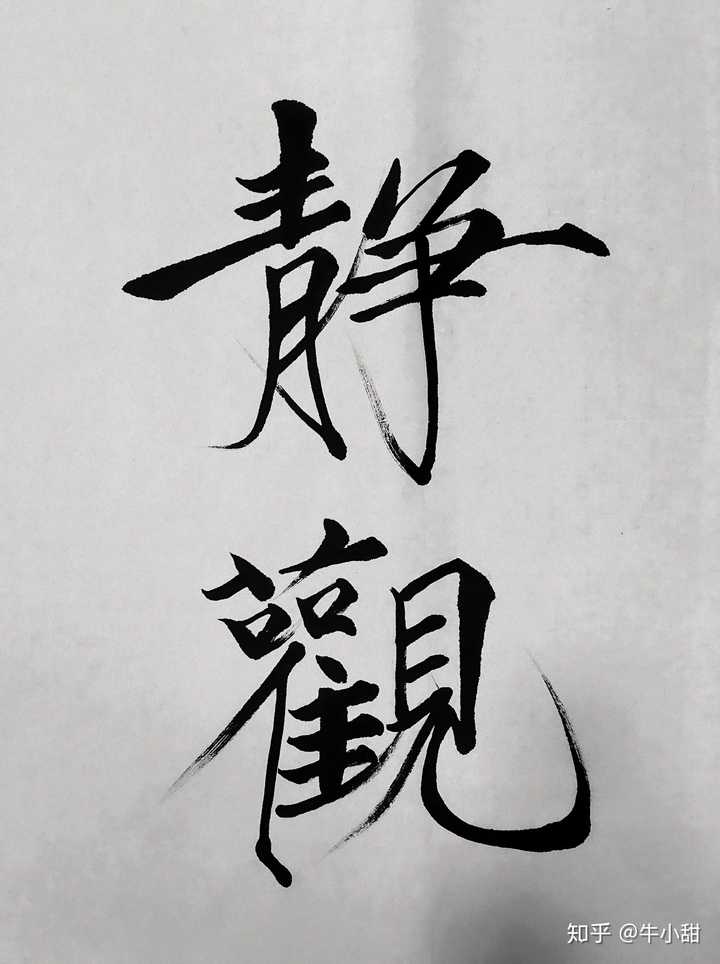 静
觀
知乎 @牛小甜